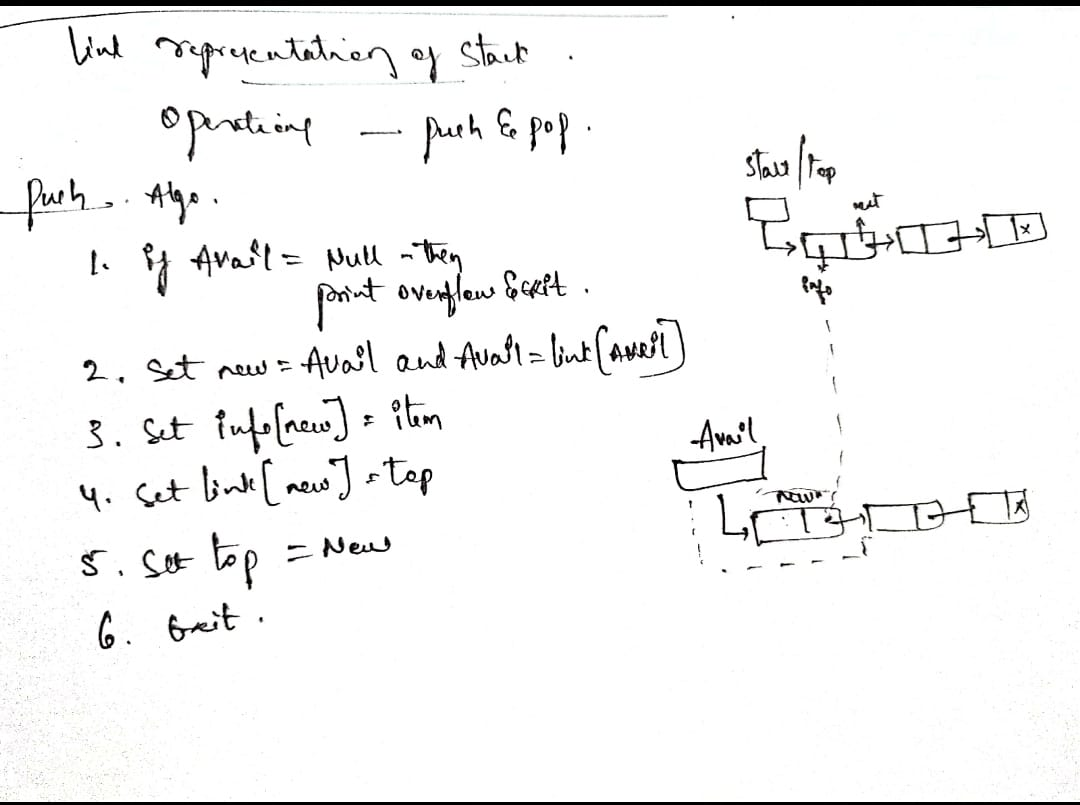 Link representation of Stack.
Operations — push & pop.
Push. Algo.
1. if Avail = Null - then
print overflow & exit.
2. Set new = Avail and Avail = link[Avail]
3. Set info[new] = item
4. Set link[new] = top
5. Set top = New
6. Exit.
Start/top
next
x
info
Avail
new
x